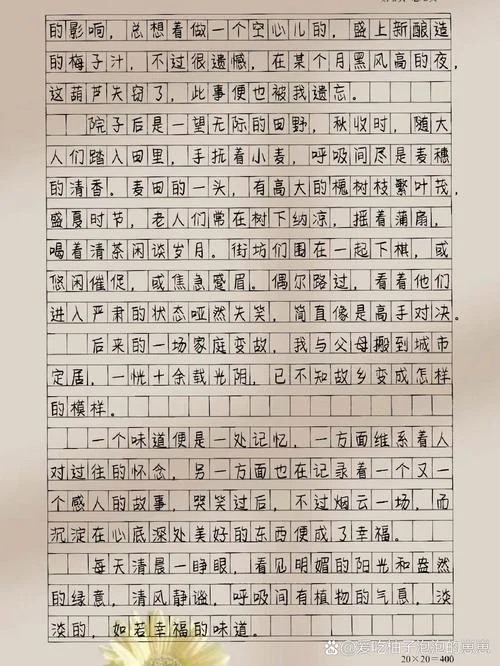 的影响，总想着做一个空心儿的，盛上新酿造
的梅子汁，不过很遗憾，在某个月黑风高的夜，
这葫芦失窃了，此事便也被我遗忘。
院子后是一望无际的田野，秋收时，随大
人们踏入田里，手扰着小麦，呼吸间尽是麦穗
的清香。麦田的一头，有高大的槐树枝繁叶茂，
盛夏时节，老人们常在树下纳凉，摇着蒲扇，
喝着清茶闲谈岁月。街坊们围在一起下棋，或
悠闲催促，或焦急蹙眉。偶尔路过，看着他们
进入严肃的状态哑然失笑，简直像是高手对决。
后来的一场家庭变故，我与父母搬到城市
定居，一恍十余载光阴，已不知故乡变成怎样
的模样。
一个味道便是一处记忆，一方面维系着人
对过往的怀念，另一方面也在记录着一个又一
个感人的故事，哭笑过后，不过烟云一场，而
沉淀在心底深处美好的东西便成了幸福。
每天清晨一睁眼，看见明媚的阳光和盎然
的绿意，清风静谧，呼吸间有植物的气息，淡
淡的，如若幸福的味道。
@爱吃柚子泡泡的崽崽
20×20=400